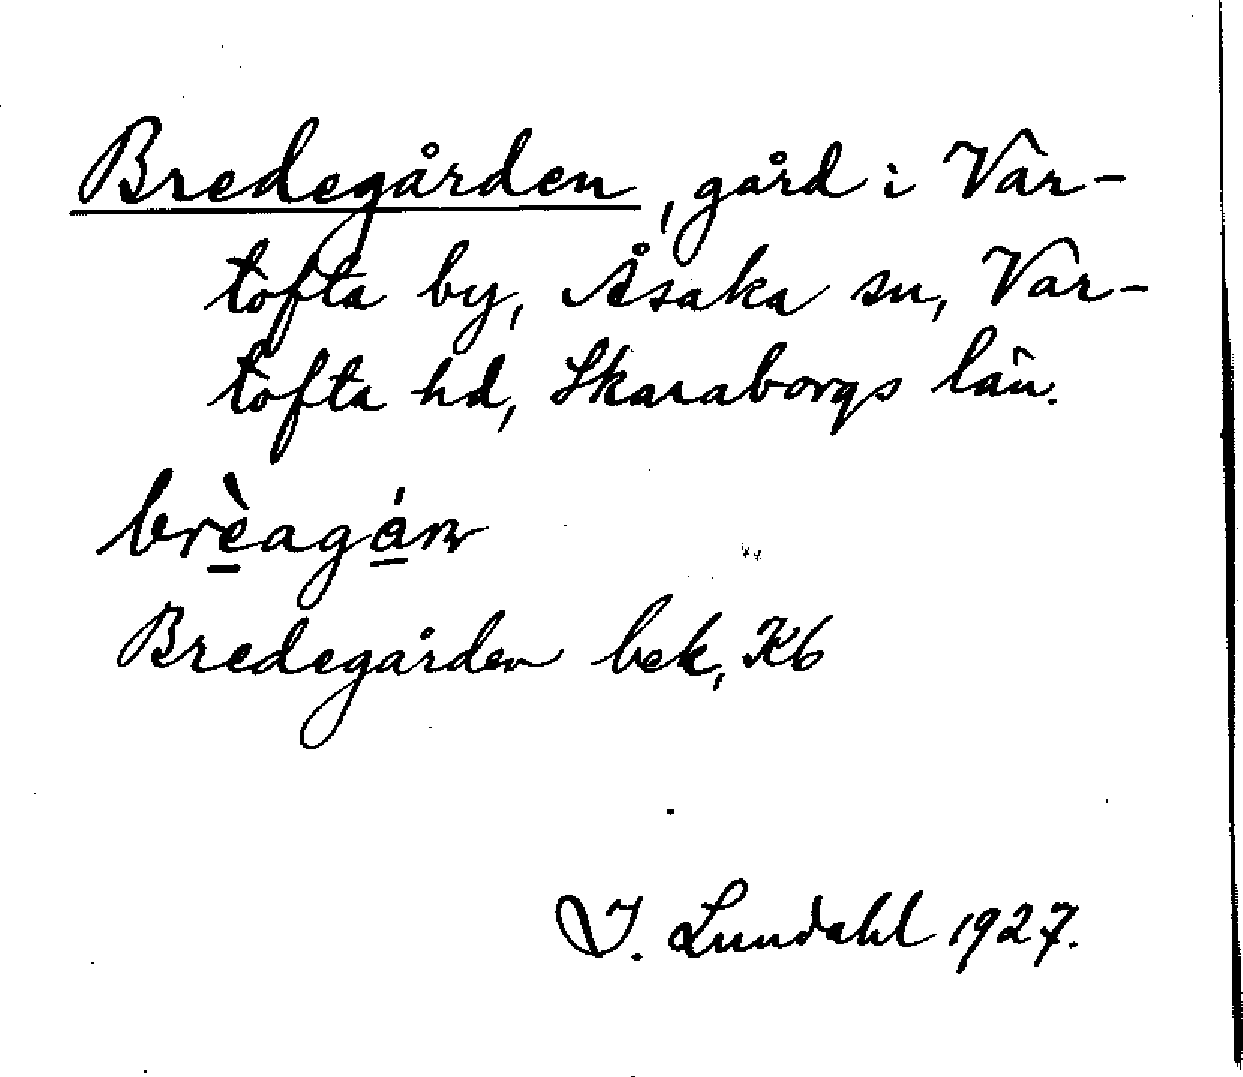 Bredegården, gård i Var-
tofta by, Åsaka sn, Var-
tofta hd, Skaraborgs län.
brèagán
Bredegården bek, Kb
I. Lundahl 1927.